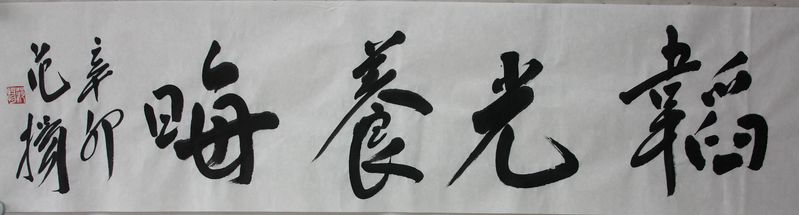 韜光養晦
辛卯
范